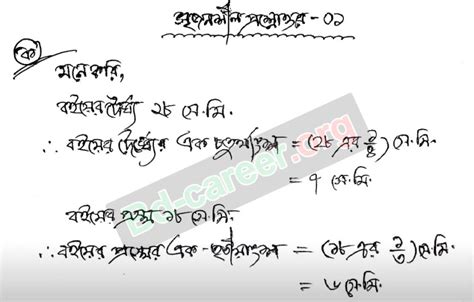 সৃজনশীল প্রশ্নোত্তর - ০১
ক
মনে করি,
বইয়ের দৈর্ঘ্য ২৮ সে.মি.
∴ বইয়ের দৈর্ঘ্যের এক চতুর্থাংশ = (২৮ এর ১/৪) সে.মি.
= ৭ সে.মি.
বইয়ের প্রস্থ ১৮ সে.মি.
∴ বইয়ের প্রস্থের এক-তৃতীয়াংশ = (১৮ এর ১/৩) সে.মি.
= ৬ সে.মি.
Bd-career.org